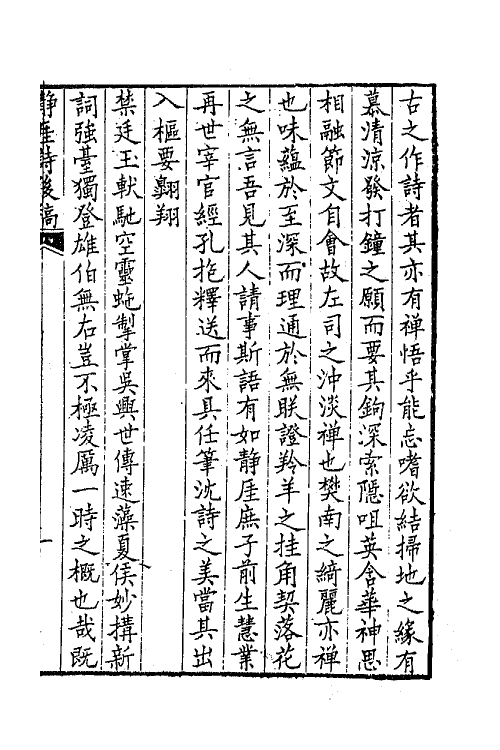 古之作詩者其亦有禅悟乎能忘嗜欲結掃地之緣有
慕清涼發打鐘之願而要其鉤深索隱咀英含華神思
相融節文自會故左司之沖淡禅也樊南之綺麗亦禅
也味蘊於至深而理通於無眹證羚羊之挂角契落花
之無言吾見其人請事斯語有如靜厓庶子前生慧業
再世宰官經孔抱釋送而來具任筆沈詩之美當其出
入樞要翺翔
禁廷玉軑馳空靈虵掣掌吳興世傳速藻夏侯妙搆新
詞強臺獨登雄伯無右豈不極凌厲一時之概也哉既
靜厓詩後稿
一